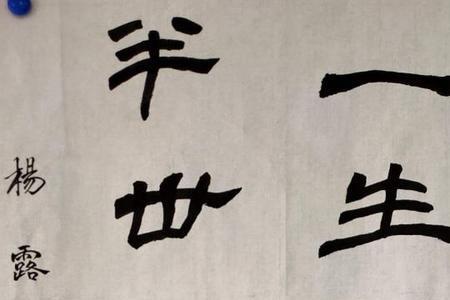 一生
半世
楊露